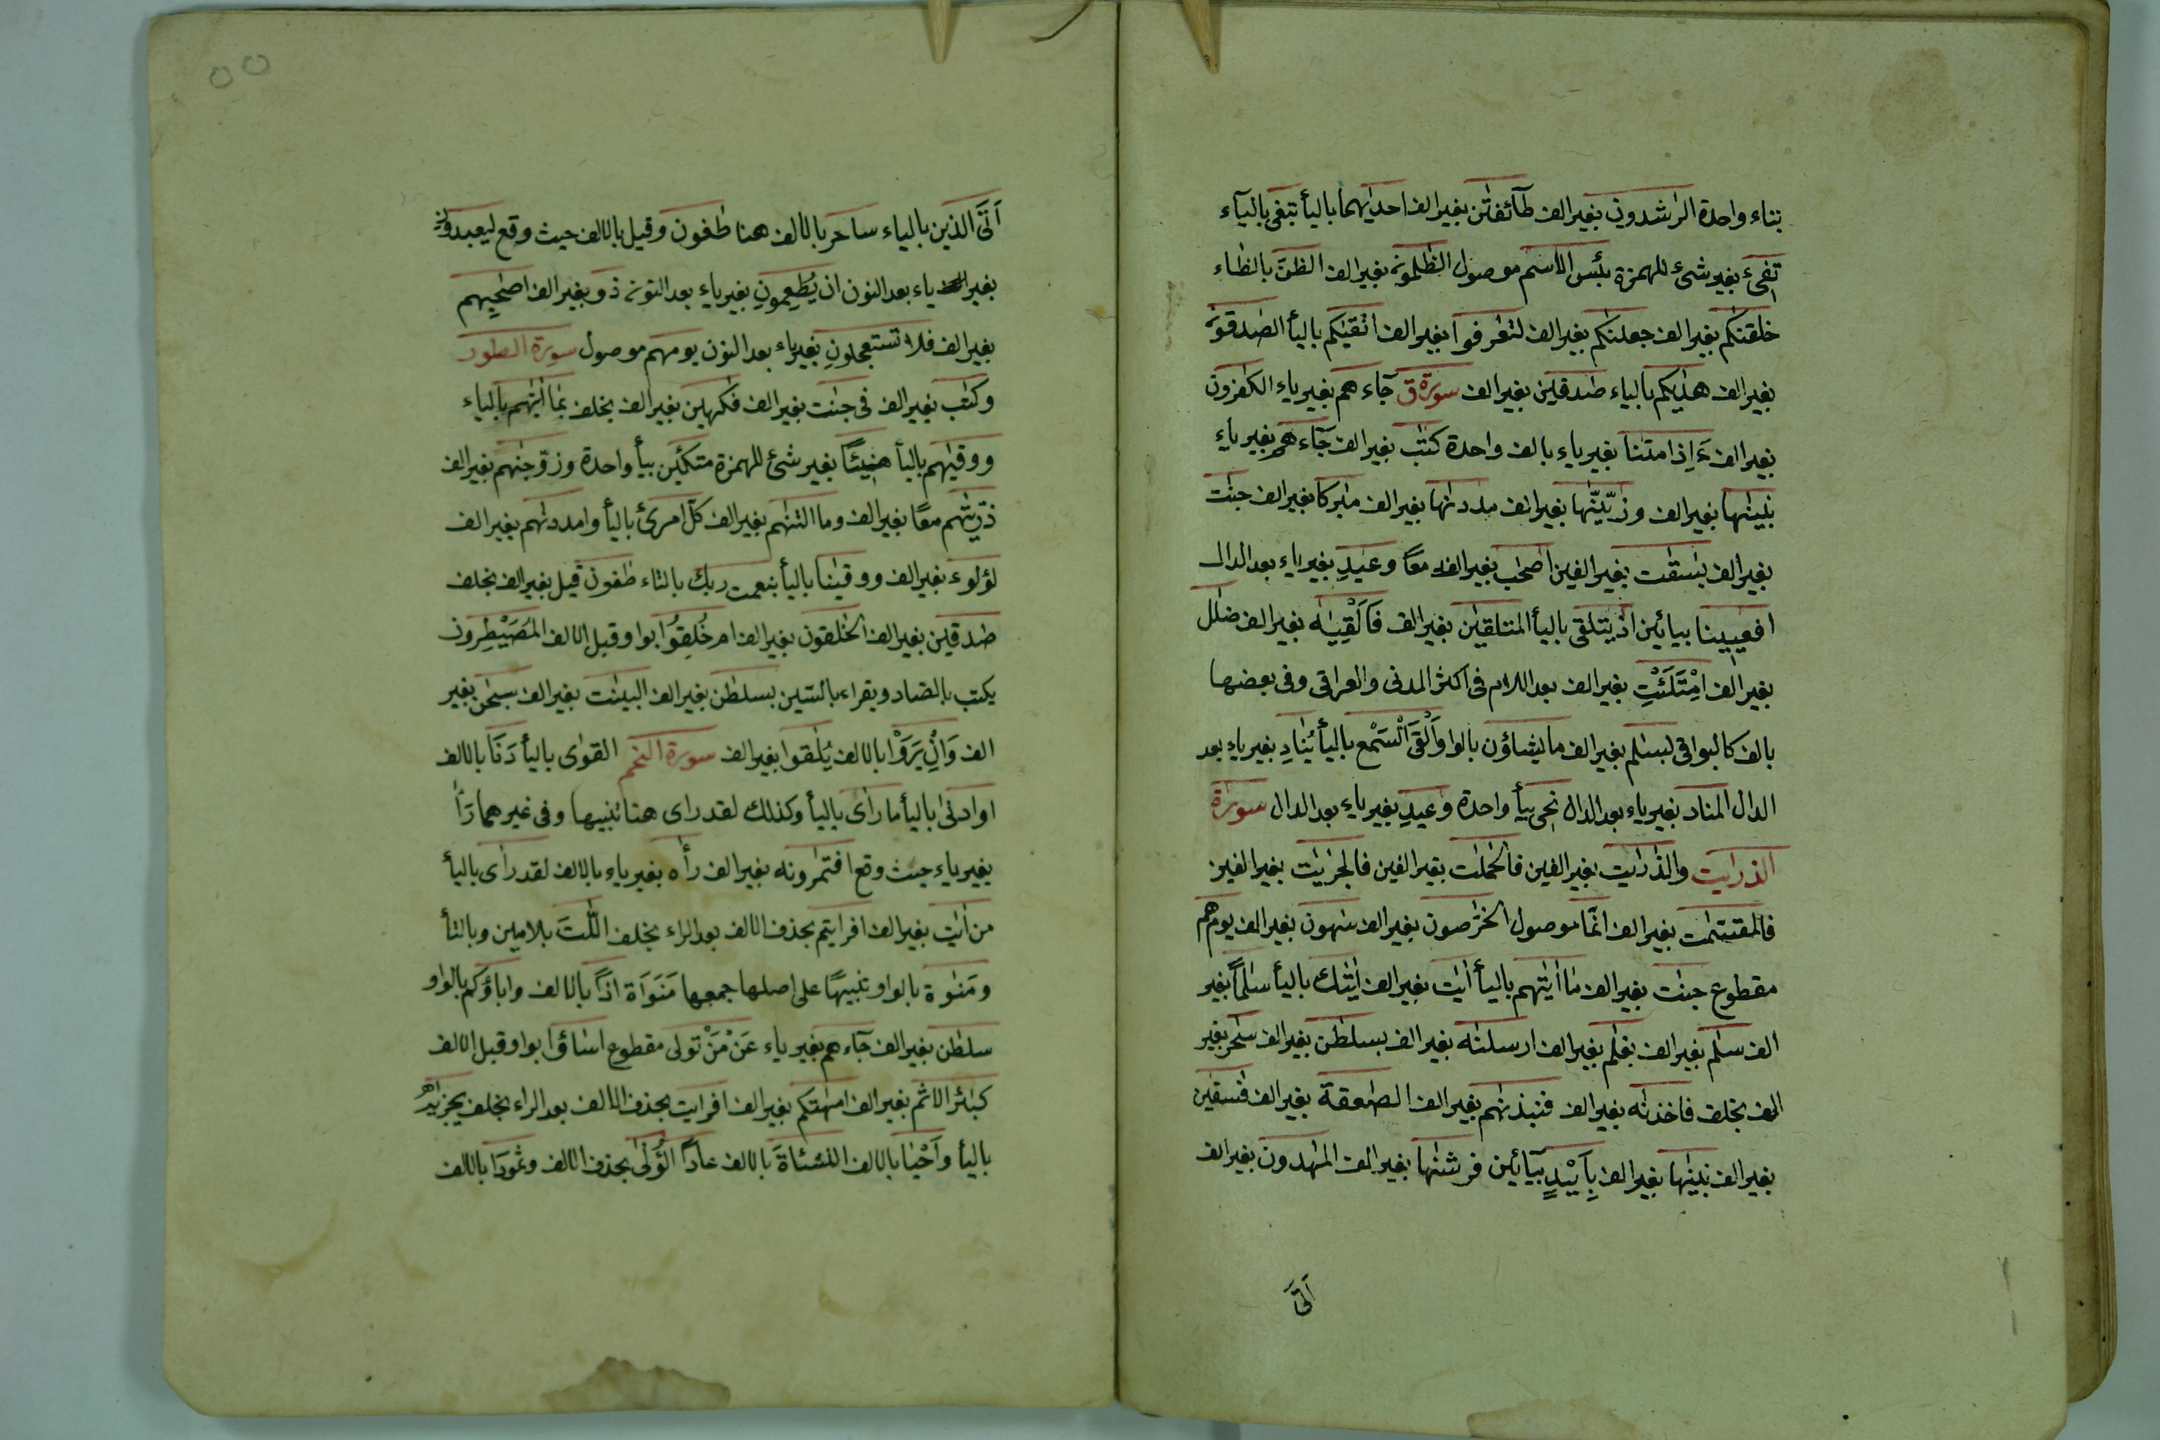 بتاء واحدة الرٰشدون بغير الف طآئفتٰن بغير الف احدٰىهما باليأ تبغى باليآء
تفىٓءَ بغير شئ للهمزة بئس الاسم موصول الظٰلمون بغير الف الظن بالظاء
خلقنٰكم بغير الف جعلنٰكم بغير الف لتعٰرفوا بغير الف اتقىٰكم باليأ الصٰدقون
بغير الف هدٰيكم بالياء صٰدقين بغير الف سورة ق جآء هم بغير ياء الكٰفرون
بغير الف ءَاِذا متنا بغير ياء بالف واحدة كتٰب بغير الف جآء هم بغير ياء
بنينٰها بغير الف وزيّنّٰها بغير الف مددنٰها بغير الف مبٰركا بغير الف جنٰت
بغير الف بٰسقٰت بغير الفين اصحٰب بغير الف معًا وعيدِ بغير ياء بعد الدال
افعيينا بيائين اذ يتلقى باليأ المتلقيٰن بغير الف فَاَلْقِيٰه بغير الف ضلٰل
بغير الف اِمْتَلَئْتِ بغير الف بعد اللام فى اكثر المدنى والعراقى وفى بعضها
بالف كالبواقى بسلٰم بغير الف ما يشاؤن بالواو اَلْقَى اْلسَّمْع باليأ يُنادِ بغير ياء بعد
الدال المناد بغير ياء بعد الدال نحى بيأ واحدة وعيدِ بغير ياء بعد الدال سورة
الذرٰيت والذٰريٰت بغير الفين فالحٰملٰت بغير الفين فالجٰريٰت بغير الفين
فالمقسّمٰت بغير الف انّما موصول الخرّٰصون بغير الف سٰهون بغير الف يوم هم
مقطوع جنٰت بغير الف ما اٰتٰيهم باليأ اٰيٰت بغير الف اتٰىك باليأ سلٰماً بغير
الف سلٰم بغير الف بغلٰم بغير الف ارسلنٰه بغير الف بسلطٰن بغير الف سٰحر بغير
الف بخلف فاخذنٰه بغير الف فنبذنٰهم بغير الف الصٰعقة بغير الف فٰسقين
بغير الف بنينٰها بغير الف بِاَيْيْدٍ بيآئين فرشنٰها بغير الف المٰهدون بغير الف
اَتَى
اَتَى الذين بالياء ساحر بالالف هنا طٰغون وقيل بالالف حيث وقع ليعبدونِ
بغير ياء بعد النون ان يُطعِمونِ بغير ياء بعد النون ذو بغير الف اصحٰبِهم
بغير الف فلا تستعجلونِ بغير ياء بعد النون يومهم موصول سورة الطور
وكتٰب بغير الف فى جنٰت بغير الف فٰكهين بغير الف بخلف بمَا اٰتٰيهم بالياء
ووقٰيهم باليأ هنيئًا بغير شئ للهمزة متكئين بيأ واحدة وزوّجنٰهم بغير الف
ذرّيتهم معًا بغير الف وما التنٰهم بغير الف كلّ امرئ باليأ وامددنٰهم بغير الف
لؤلوء بغير الف ووقٰينا باليأ بنعمت ربك بالتاء طٰغون قيل بغير الف بخلف
صٰدقين بغير الف الخٰلقون بغير الف ام خُلِقوُا بواو قبل الالف المُصَيْطِرون
يكتب بالصاد ويقراء بالسّين بسلطٰن بغير الف البينٰت بغير الف سبحٰن بغير
الف وَاِنْ يَرَوْا بالالف يُلٰقوا بغير الف سورة النجم القوٰى باليأ دَنَا بالالف
او ادنٰى باليأ ما راٰى باليأ وكذلك لقد راى هنا تنبيها وفى غيرهما رَاٰ
بغير ياء حيث وقع افتمٰرونه بغير الف رأه بغير ياء بالالف لقد راٰى باليأ
من اٰيٰت بغير الف افرايتم بحذف الالف بعد الراء بخلف اللّٰتَ بلامين وبالتأ
ومَنٰوة بالواو تنبيهًا على اصلها جمعها مَنَوَاة اذًا بالالف واباؤكم بالواو
سلطٰن بغير الف جآء هم بغير ياء عَنْ مَنْ تَولى مقطوع اساؤا بواو قبل الالف
كبٰئر الاثم بغير الف امهٰتكم بغير الف افرايت بحذف الالف بعد الراء بخلف يجزٰيه
باليأ وَاَحْيَا بالالف النشئاةَ بالالف عاداً الُّولٰى بحذف الالف وثمودَا بالالف